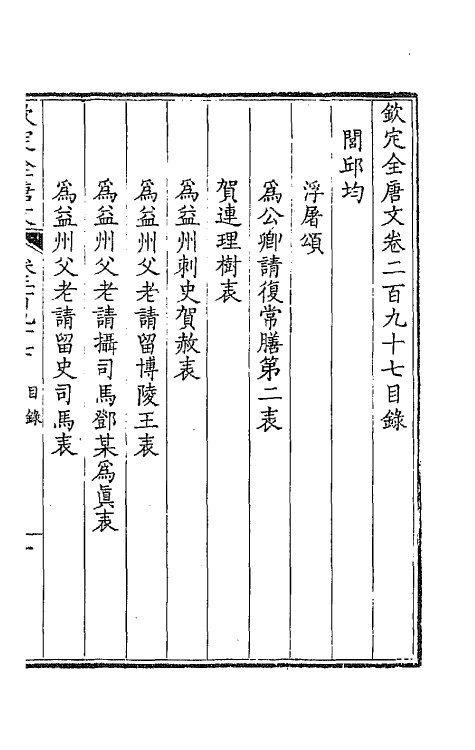 欽定全唐文卷二百九十七目錄
閭邱均
浮屠頌
爲公卿請復常膳第二表
賀連理樹表
爲益州刺史賀赦表
爲益州父老請留博陵王表
爲益州父老請攝司馬鄧某爲眞表
爲益州父老請留史司馬表
目錄
一